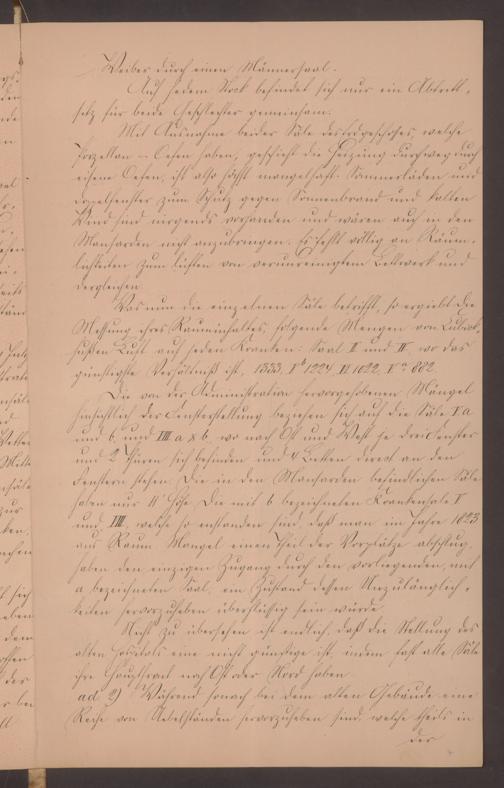 Weiber durch einen Männersaal.
Auf jedem Stock befindet sich nur ein Abtritt-
sitz für beide Geschlechter gemeinsam.
Mit Ausnahme beider Säle des Erdgeschoßes, welche
Porzellan-Oefen haben, geschieht die Heizung durchweg durch
eiserne Oefen, ist also höchst mangelhaft. Sommerläden und
Doppelfenster zum Schutz gegen Sonnenbrand und kalten
Wind sind nirgends vorhanden und wären auch in den
Mansarden nicht anzubringen. Es fehlt völlig an Räum-
lichkeiten zum Lüften von verunreinigtem Bettwerk und
dergleichen.
Was nun die einzelnen Säle betrifft, so ergiebt die
Messung ihres Rauminhaltes folgende Mengen von Cubik-
fußen Luft auf jeden Kranken: Saal II und IV, wo das
günstigste Verhältniß ist, 1333, V b 1224, VI 1022, V a 882.
Die von der Administration hervorgehobenen Mängel
hinsichtlich der Fensterstellung beziehen sich auf die Säle V a
und b und VIII a & b, wo nach Ost und West je drei Fenster
und 2 Thüren sich befinden und 4 Betten direct an den
Fenstern stehen. Die in den Mansarden befindlichen Säle
haben nur 11' Höhe. Die mit b bezeichneten Krankensäle V
und VIII, welche so entstanden sind, daß man im Jahre 1823
aus Raum-Mangel einen Theil der Vorplätze abschlug,
haben den einzigen Zugang durch den vorliegenden, mit
a bezeichneten Saal, ein Zustand dessen Unzulänglich-
keiten hervorzuheben überflüssig sein würde.
Nicht zu übersehen ist endlich, daß die Stellung des
alten Hospitals eine nicht günstige ist, indem fast alle Säle
ihre Hauptfront nach Ost oder Nord haben.
ad 2) Während sonach bei dem alten Gebäude eine
Reihe von Uebelständen hervorzuheben sind, welche theils in
der